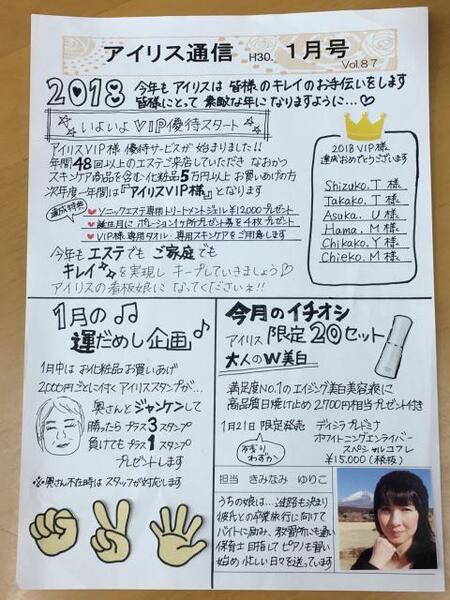 アイリス通信 H30. 1月号
Vol.87
2018 今年も アイリスは 皆様のキレイのお手伝いをします
皆様にとって 素敵な年に なりますように…♡
いよいよ VIP優待スタート
アイリスVIP様 優待サービスが 始まりました!!
年間48回以上のエステご来店していただき なおかつ
スキンケア商品を含む化粧品5万円以上お買いあげの方
次年度一年間は『アイリスVIP様』となります
達成特典
♥ ソニックエステ専用トリートメントジェル¥12,000プレゼント
♥ 誕生月に ポレーション1ヶ所プレゼント券を4枚プレゼント
♥ VIP様専用タオル・専用スキンケアをご用意します
今年も エステでも ご家庭でも
キレイを実現し キープしていきましょう♡
アイリスの看板娘に なってくださいネ!!
2018 VIP様
達成おめでとうございます
Shizuko.T 様
Takako.T 様
Asuka.U 様
Hama.M 様
Chikako.Y 様
Chieko.M 様
1月の♫
運だめし企画♪
1月中は お化粧品お買いあげ
2,000円ごとに付く アイリススタンプが…
奥さんとジャンケンして
勝ったら プラス3スタンプ
負けても プラス1スタンプ
プレゼントします
※奥さん不在時は スタッフが対応します
今月のイチオシ
アイリス 限定20セット
大人のW美白
満足度No.1のエイジング美白美容液に
高品質日焼け止め 2,700円相当プレゼント付き
1月21日 限定発売
残りわずか
ホワイトニングエンライバー
スペシャルコフレ
¥15,000(税抜)
担当 きみなみ ゆりこ
うちの娘は…進路も決まり
彼氏との卒業旅行に向けて
バイトに励み、教習所にも通い
保育士目指して ピアノも習い
始め 忙しい日々を送っています